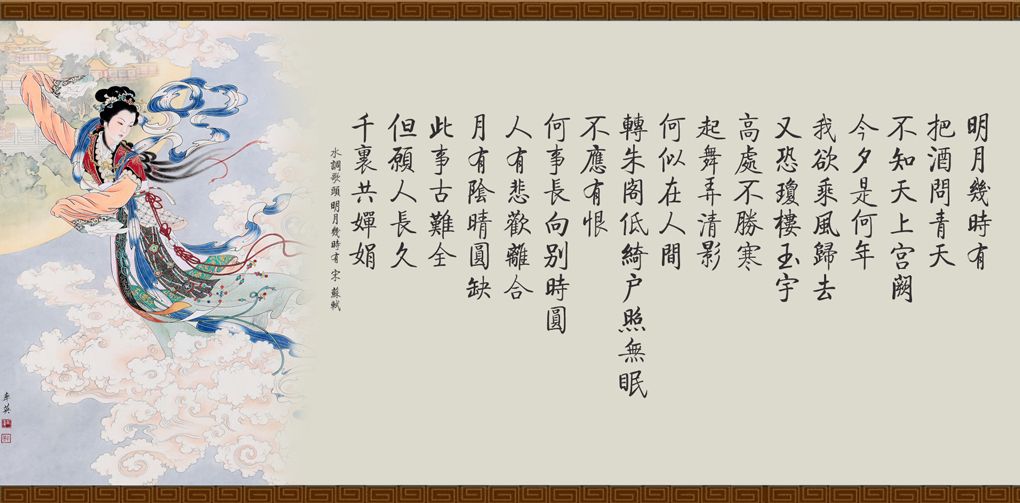 明月幾時有
把酒問青天
不知天上宫闕
今夕是何年
我欲乘風歸去
又恐瓊樓玉宇
高處不勝寒
起舞弄清影
何似在人間
轉朱阁低綺户照無眠
不應有恨
何事長向别時圓
人有悲歡離合
月有陰晴圓缺
此事古難全
但願人長久
千裏共嬋娟
水調歌頭 明月幾時有 宋 蘇軾